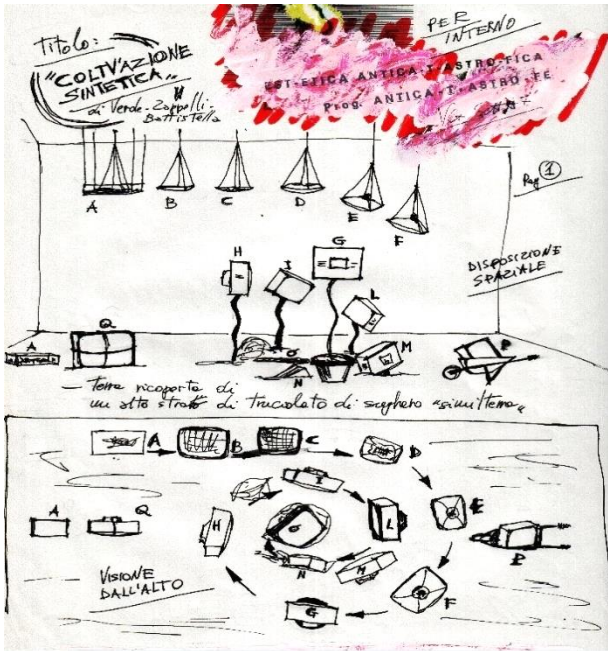 Titolo:
"COLTIV'AZIONE
SINTETICA"
di Verde-Zappolli-
Battistella
PER
INTERNO
EST-ETICA ANTICA-T-ASTRO-FICA
Prog. ANTICA-T-ASTRO-FE
Pag. 1
A B C D E F
H I G L
DISPOSIZIONE
SPAZIALE
A Q O N M P
— terra ricoperta di
un alto strato di truciolato di sughero "simil terra"
A B C D
A Q H I L E P
O
N M
VISIONE
DALL'ALTO
G F